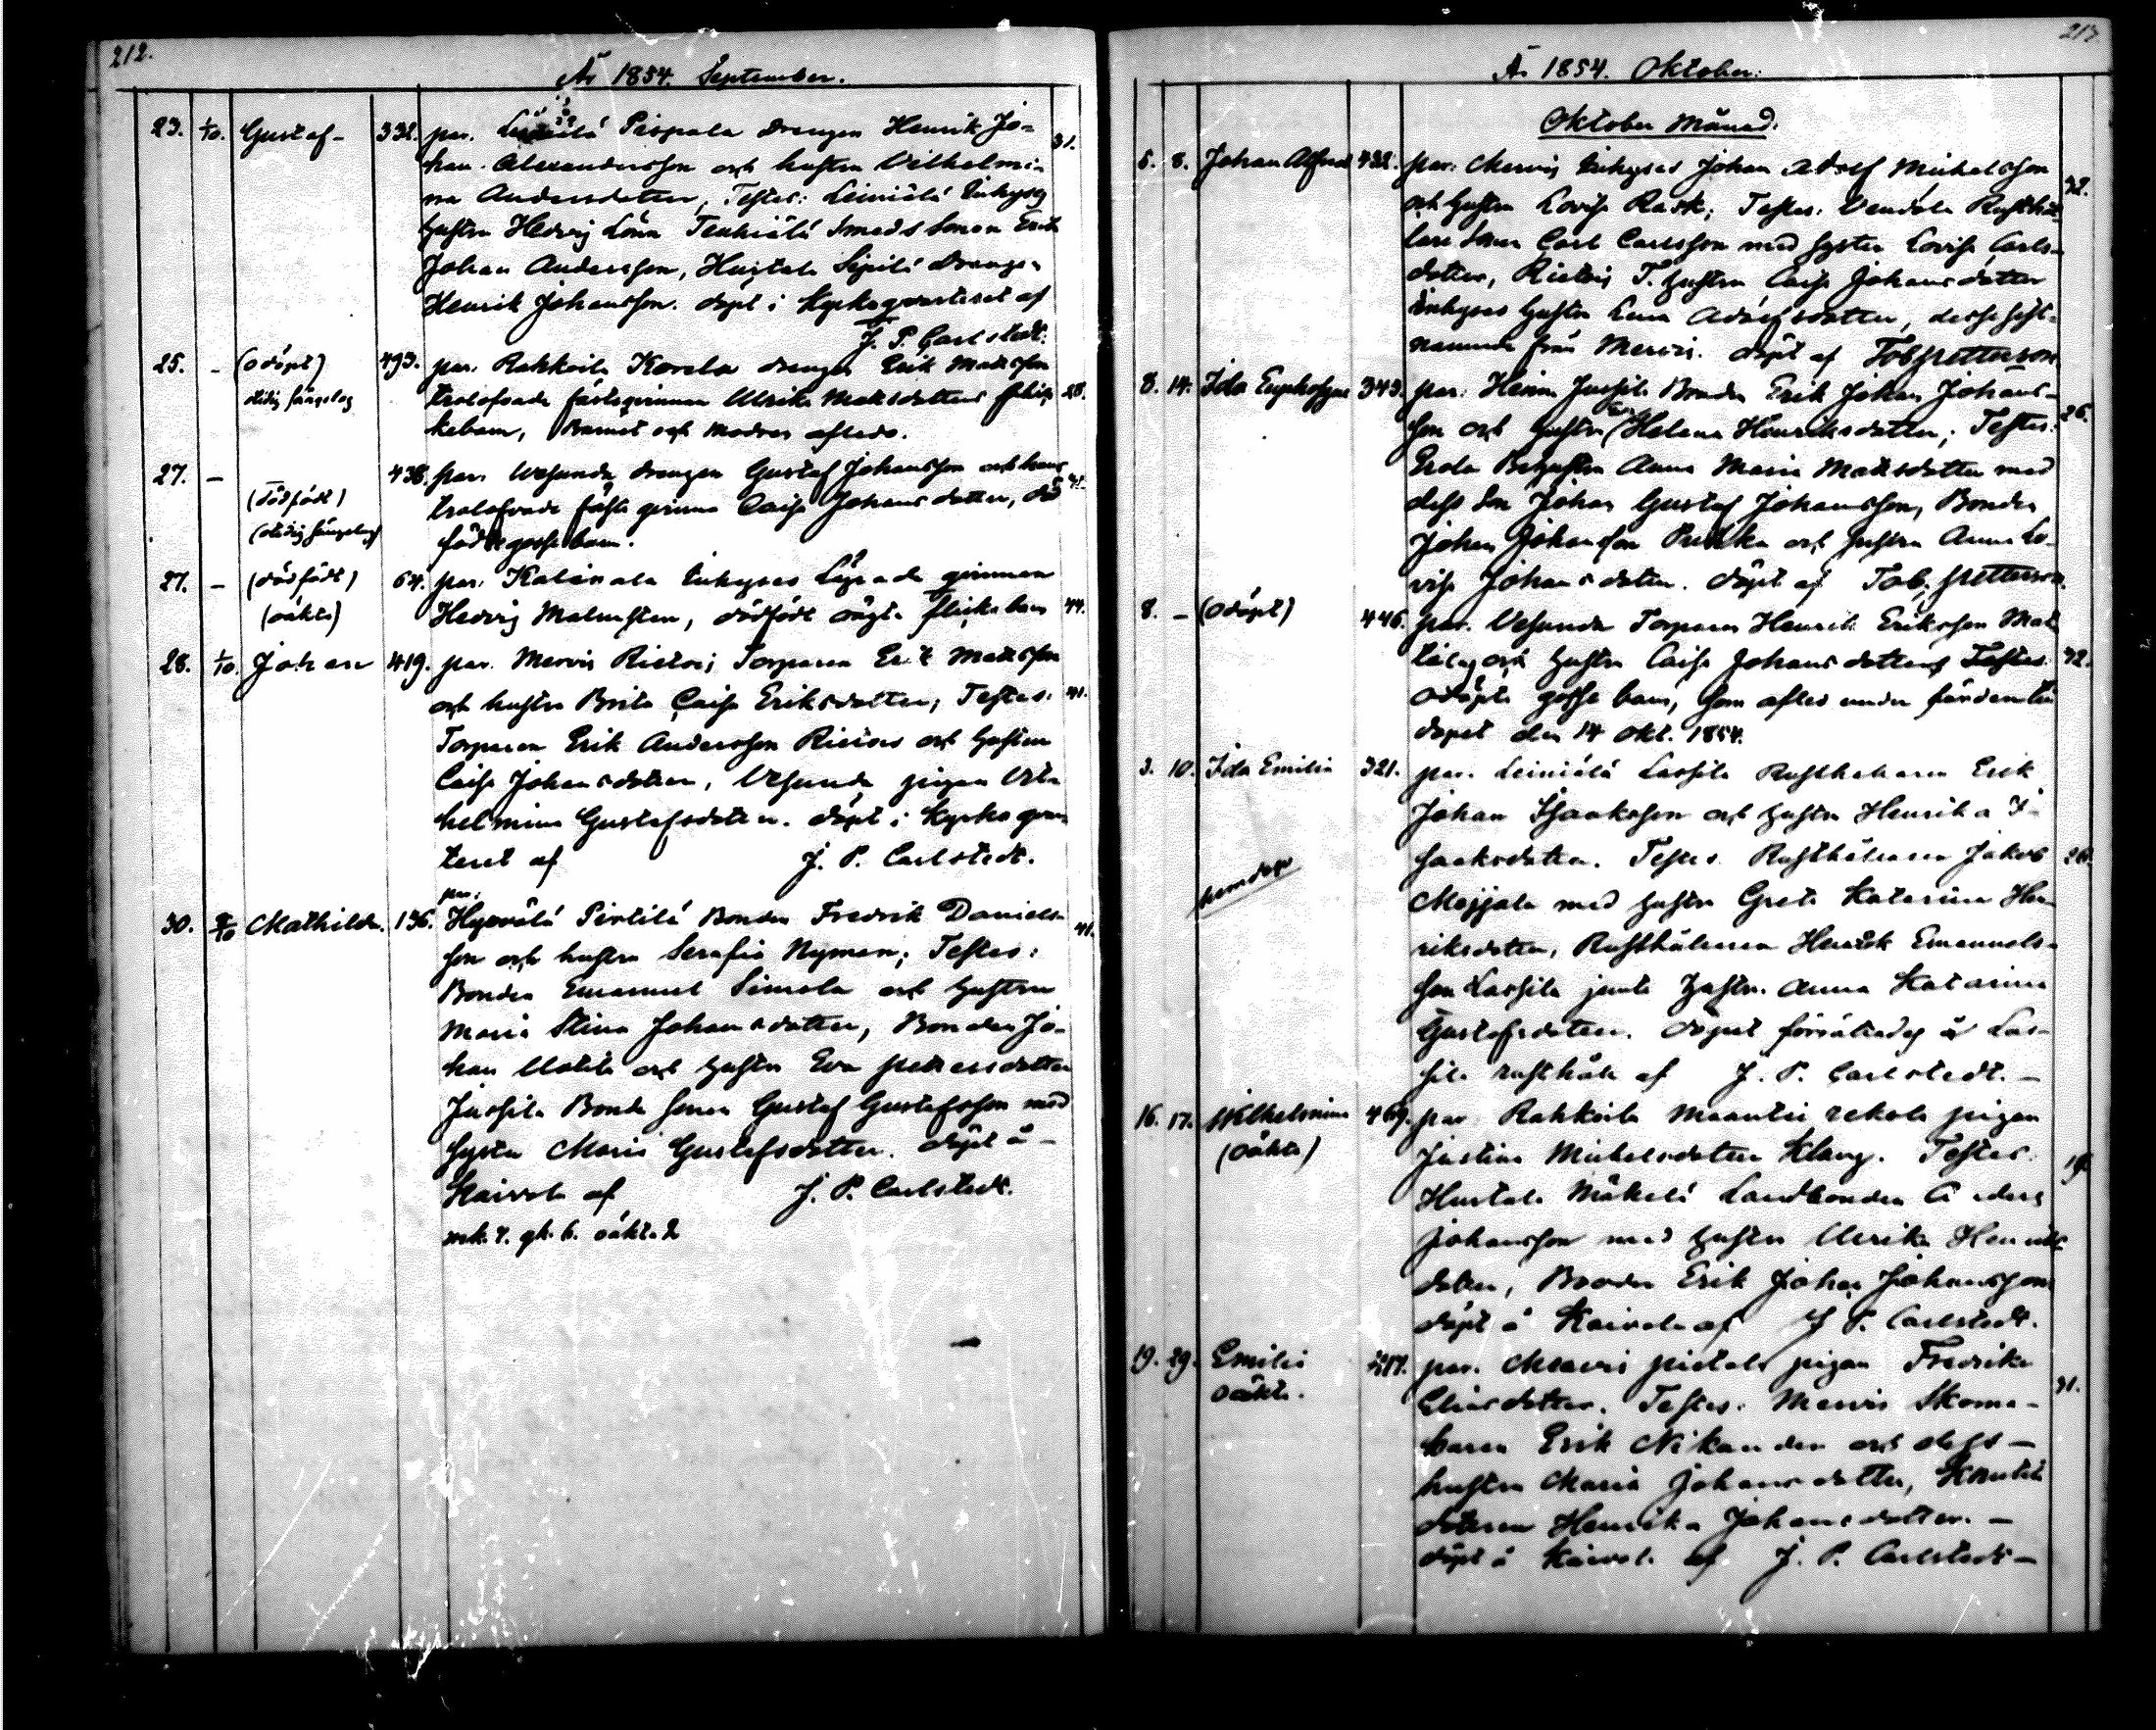 212.
År 1854. September.
23. 1/10. Gustaf- 332. par. Leiniälä Piospala drengen Henrik Jo-
han Alexandersson och hustru Vilhelmi-
na Andersdotter, Testes: Leiniälä Inhyses
hustru Hedvig Lönn Smeds sonen Erik 31.
Johan Andersson, Hujtala Sipilä drengen
Henrik Johansson. döpt i Kyrkoqvarteret af
J. P. Carlstedt.
25. - (odöpt) 493. par. Rakkoila Karela drengen Erik Matsson
oldig sängelag trolofvade fästeqvinnan Ulrika Matsdotters flic- 28.
kebarn, Barnet och modren afledo.
27. - (dödfödt) 438. par. Vesunda drengen Gustaf Johansson och hans
trolofvade fäste qvinna Caisa Johansdotter, död
född gossebarn.
27. - (dödfödt) 64. par. Inhyses qvinnan
(oäkta) Hedvig Malmsten, dödfödt oägta flickebarn 44.
28. 1/10. Johan 419. par. Mervis Rietois Torparen Erik Matsson
och hustru Brita Caisa Eriksdotter, Testes: 41.
Torparen Erik Andersson Rietois och hustrun
Caisa Johansdotter, Vesunda pigan Vil-
helmina Gustafsdotter. döpt i Kyrkoqvar-
teret af J. P. Carlstedt.
30. 8/10 Mathilda. 136. par. Hyrvälä Pertilä Bonden Fredrik Daniels- 41.
son och hustru Serafia Nyman; Testes:
Bonden Emanuel Simola och hustrun
Maria Stina Johansdotter, Bonden Jo-
han Uotila och hustru Eva Pettersdotter
Jussila Bonde sonen Gustaf Gustafsson med
syster Maria Gustafsdotter. döpt å -
Kaivola af J. P. Carlstedt.
mk. 7. qk. 6. oäkt. 2
213
År 1854. Oktober.
Oktober Månad.
5. 8. Johan Alfred 432. par. Mervis Inhyses Johan Adolf Michelsson 32.
och hustru Lovisa Rask; Testes: Vendola Rusthål-
lare Sonen Carl Carlsson med syster Lovisa Carls-
dotter, Rietois T. hustru Caisa Johansdotter
Inhyses hustru Lena Adolfsdotter, desse sist-
nämnde från Mervis. döpt af Tob. Pettersson.
8. 14. Ida Euphosyne 343. par. Heinu Jussila Bonden Erik Johan Johans- 26.
son och hustru Helena Henriksdotter; Testes:
Erola B. hustru Anna Maria Matsdotter med
dess Son Johan Gustaf Johansson, Bonden
Johan Johansson och hustru Anna Lo-
visa Johansdotter. döpt af Tob. Pettersson.
8. - (odöpt) 446. par. Vesunda Torparen Henrik Eriksson Mat-
tilas och hustru Caisa Johansdotters Testes 42.
odöpte gosse barn, som afled under färden till
dopet den 14 Okt. 1854.
3. 10. Ida Emilia 321. par. Leiniälä Lassila Rusthållaren Erik
Johan Isaaksson och hustru Henrika I-
saaksdotter. Testes. Rusthållaren Jakob 26.
hemdop Mojjala med hustru Greta Katarina Hen-
riksdotter, Rusthållaren Henrik Emanuels-
son Lassila jemte hustru Anna Katarina
Gustafsdotter. Dopet förrättades å Las-
sila rusthåll af J. P. Carlstedt. -
16. 17. Wilhelmina 469. par. Rakkoila pigan
(oäkta) Justina Michelsdotter Klang. Testes. 19.
Hustala Mäkelä Landbonden Anders
Johansson med hustru Ulrika Henriks
dotter, Bonden Erik Johan Johansson
döpt å Kaivola af J. P. Carlstedt.
19. 29. Emilia 417. par. Mervi pietola pigan Fredrika
oäkta. Eliasdotter. Testes: Mervis Skoma- 31.
karen Erik Nikander och dess -
hustru Maria Johansdotter,
dotren Henrika Johansdotter. -
döpt å Kaivola af J. P. Carlstedt -